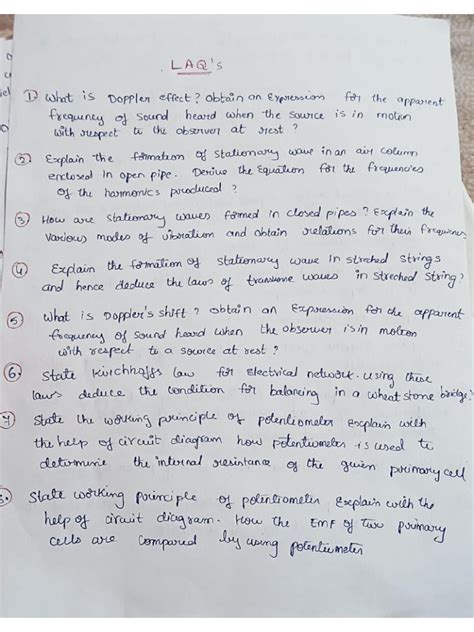 LAQ's
① What is Doppler effect? Obtain an Expression for the apparent
frequency of sound heard when the source is in motion
with respect to the observer at rest?
② Explain the formation of stationary wave in an air column
enclosed in open pipe. Derive the Equation for the frequencies
of the harmonics produced?
③ How are stationary waves formed in closed pipes? Explain the
various modes of vibration and obtain relations for their frequencies
④ Explain the formation of stationary wave in streched strings
and hence deduce the laws of transverse waves in streched string?
⑤ What is Doppler's shift? obtain an Expression for the apparent
frequency of sound heard when the observer is in motion
with respect to a source at rest?
6. State Kirchhoffs law for Electrical network. using these
laws deduce the condition for balancing in a wheat stone bridge?
7 State the working principle of potentiometer Explain with
the help of circuit diagram how potentiometer is used to
determine the internal resistance of the given primary cell
8. State working principle of potentiometer Explain with the
help of circuit diagram. How the EMF of two primary
cells are compared by using potentiometer